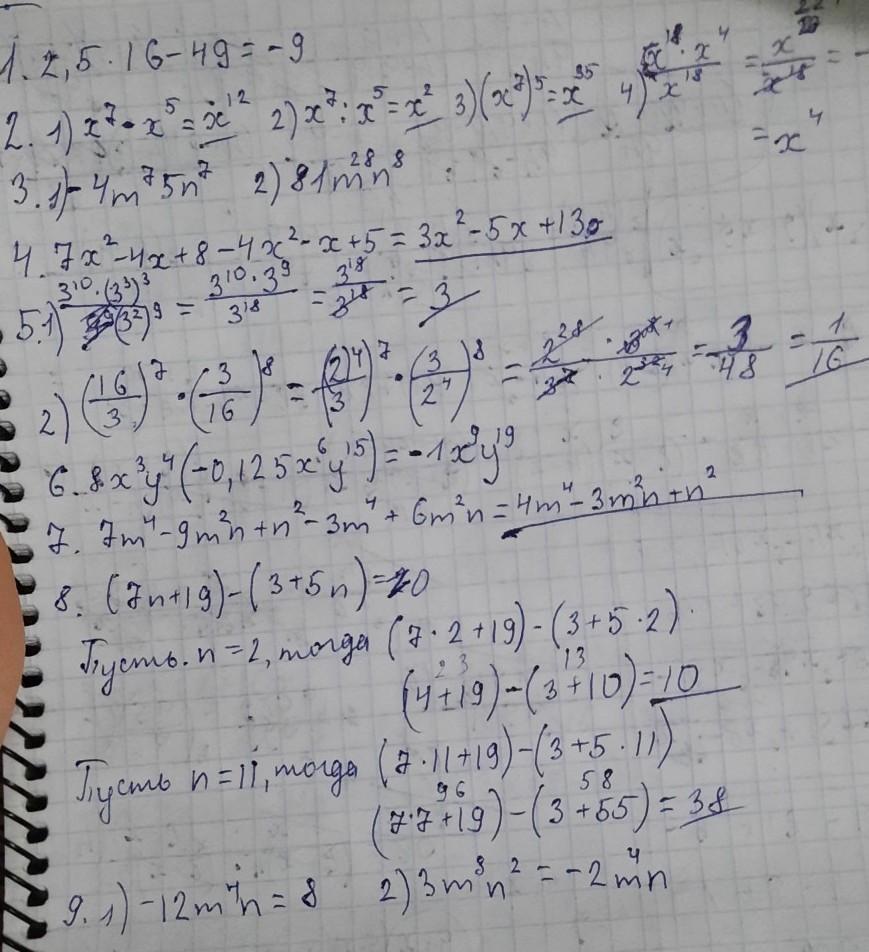 1. 2,5 · 16 - 49 = -9
2. 1) x⁷ · x⁵ = x¹² 2) x⁷ : x⁵ = x² 3) (x⁷)⁵ = x³⁵ 4) x¹⁸ · x⁴ / x¹⁸ = x²² / x¹⁸ =
= x⁴
3. 1) - 4m⁷5n⁷ 2) 81m²⁸n⁸
4. 7x² - 4x + 8 - 4x² - x + 5 = 3x² - 5x + 13
5. 1) 3¹⁰ · (3³)³ / (3²)⁹ = 3¹⁰ · 3⁹ / 3¹⁸ = 3¹⁸ / 3¹⁸ = 3
2) (16/3)⁷ · (3/16)⁸ = ((2)⁴/3)⁷ · (3/2⁴)⁸ = 2²⁸ / 3⁷ · 3⁸ / 2³² = 3/48 = 1/16
6. 8x³y⁴(-0,125x⁶y¹⁵) = -1x⁹y¹⁹
7. 7m⁴ - 9m²n + n² - 3m⁴ + 6m²n = 4m⁴ - 3m²n + n²
8. (7n+19) - (3+5n) = 20
Пусть n = 2, тогда (7·2+19) - (3+5·2)
23 13
(4+19) - (3+10) = 10
Пусть n = 11, тогда (7·11+19) - (3+5·11)
96 58
(7·7+19) - (3+55) = 38
9. 1) -12m⁴n = 8 2) 3m⁸n² = -2m⁴n